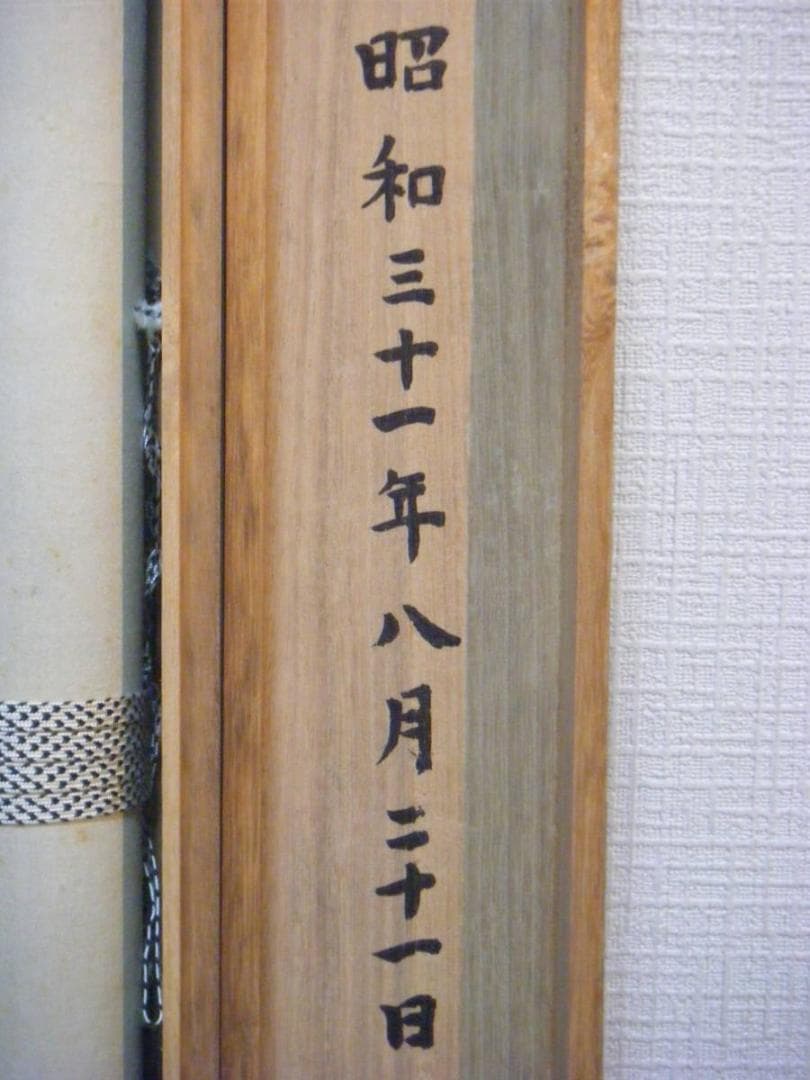 昭和三十一年八月二十一日